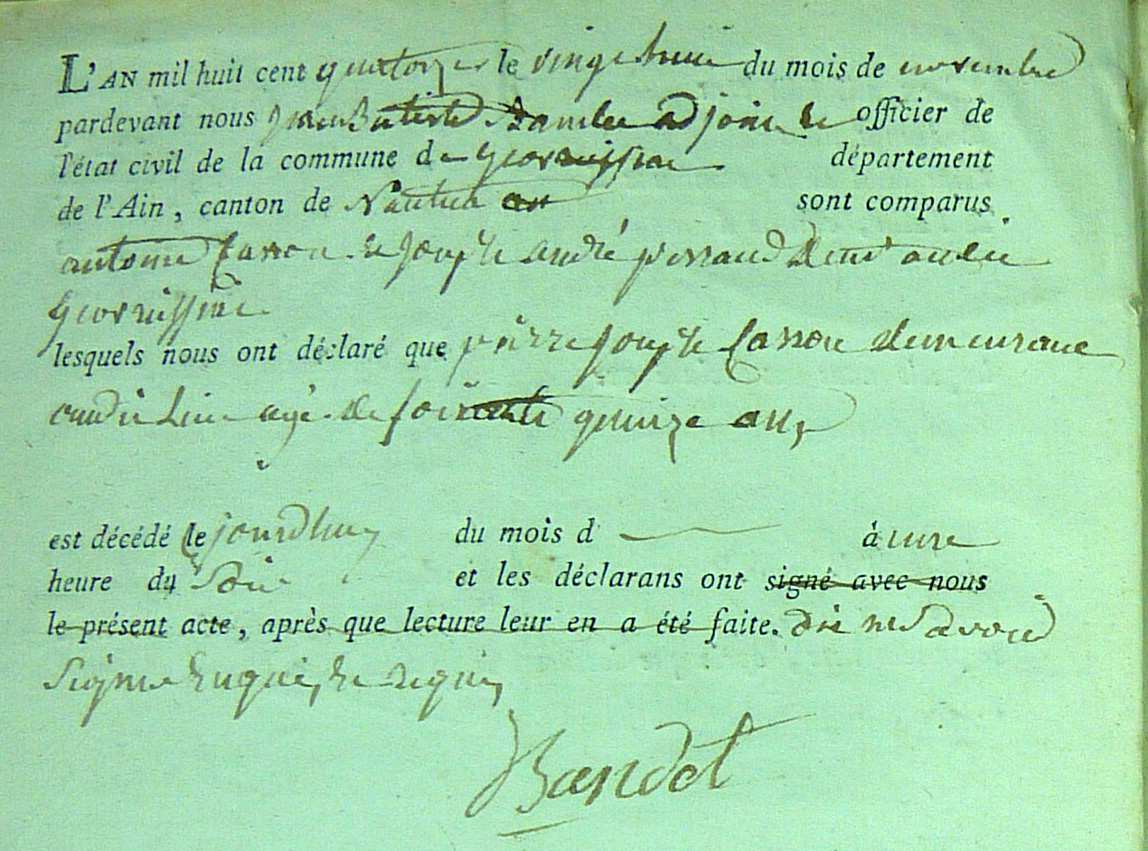 L'AN mil huit cent quatorze le vingt huit du mois de novembre
pardevant nous Jean Batiste adjoint officier de
l'état civil de la commune de Geovreissiat département
de l'Ain, canton de Nantua sont comparus
antoine Carron et Joseph andré perraud demt audit
Geovreissiat
lesquels nous ont déclaré que pierre Joseph Carron demeurant
audit Lieu agé de soixante quinze ans
est décédé le jourdhuy du mois d à une
heure du Soir et les déclarans ont signé avec nous
le présent acte, après que lecture leur en a été faite. dit ne Savoir
Signer Enquis et requis
Baudet